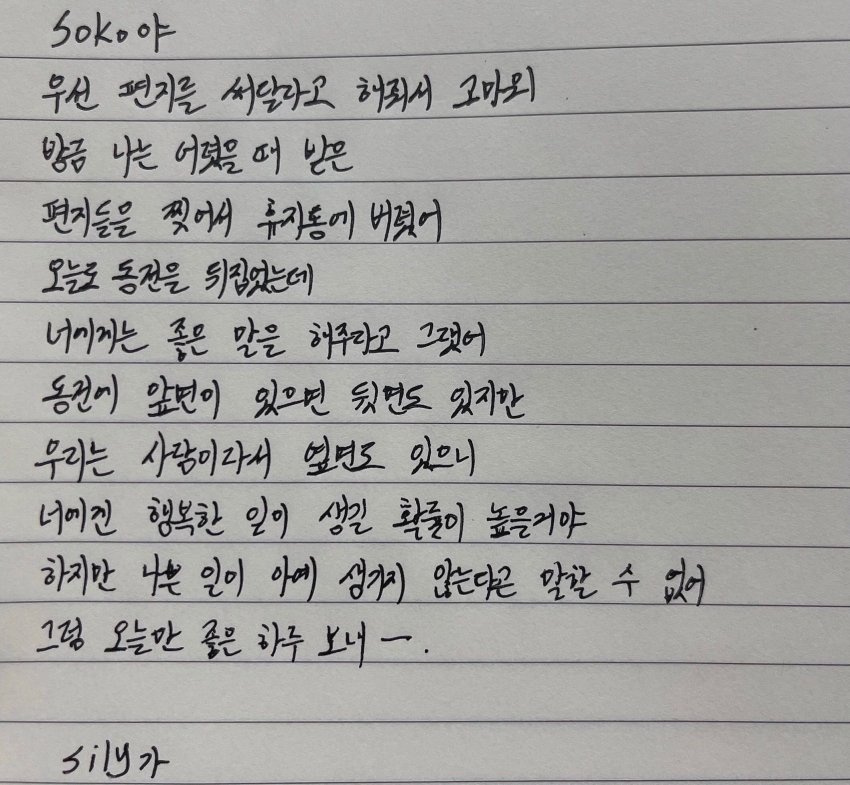 soko야
우선 편지를 써달라고 해줘서 고마워
방금 나는 어렸을 때 받은
편지들을 찢어서 휴지통에 버렸어
오늘도 동전을 뒤집었는데
너에게는 좋은 말을 해주라고 그랬어
동전에 앞면이 있으면 뒷면도 있지만
우리는 사람이라서 옆면도 있으니
너에겐 행복한 일이 생길 확률이 높을거야
하지만 나쁜 일이 아예 생기지 않는다곤 말할 수 없어
그럼 오늘만 좋은 하루 보내ㅡ.
sily가